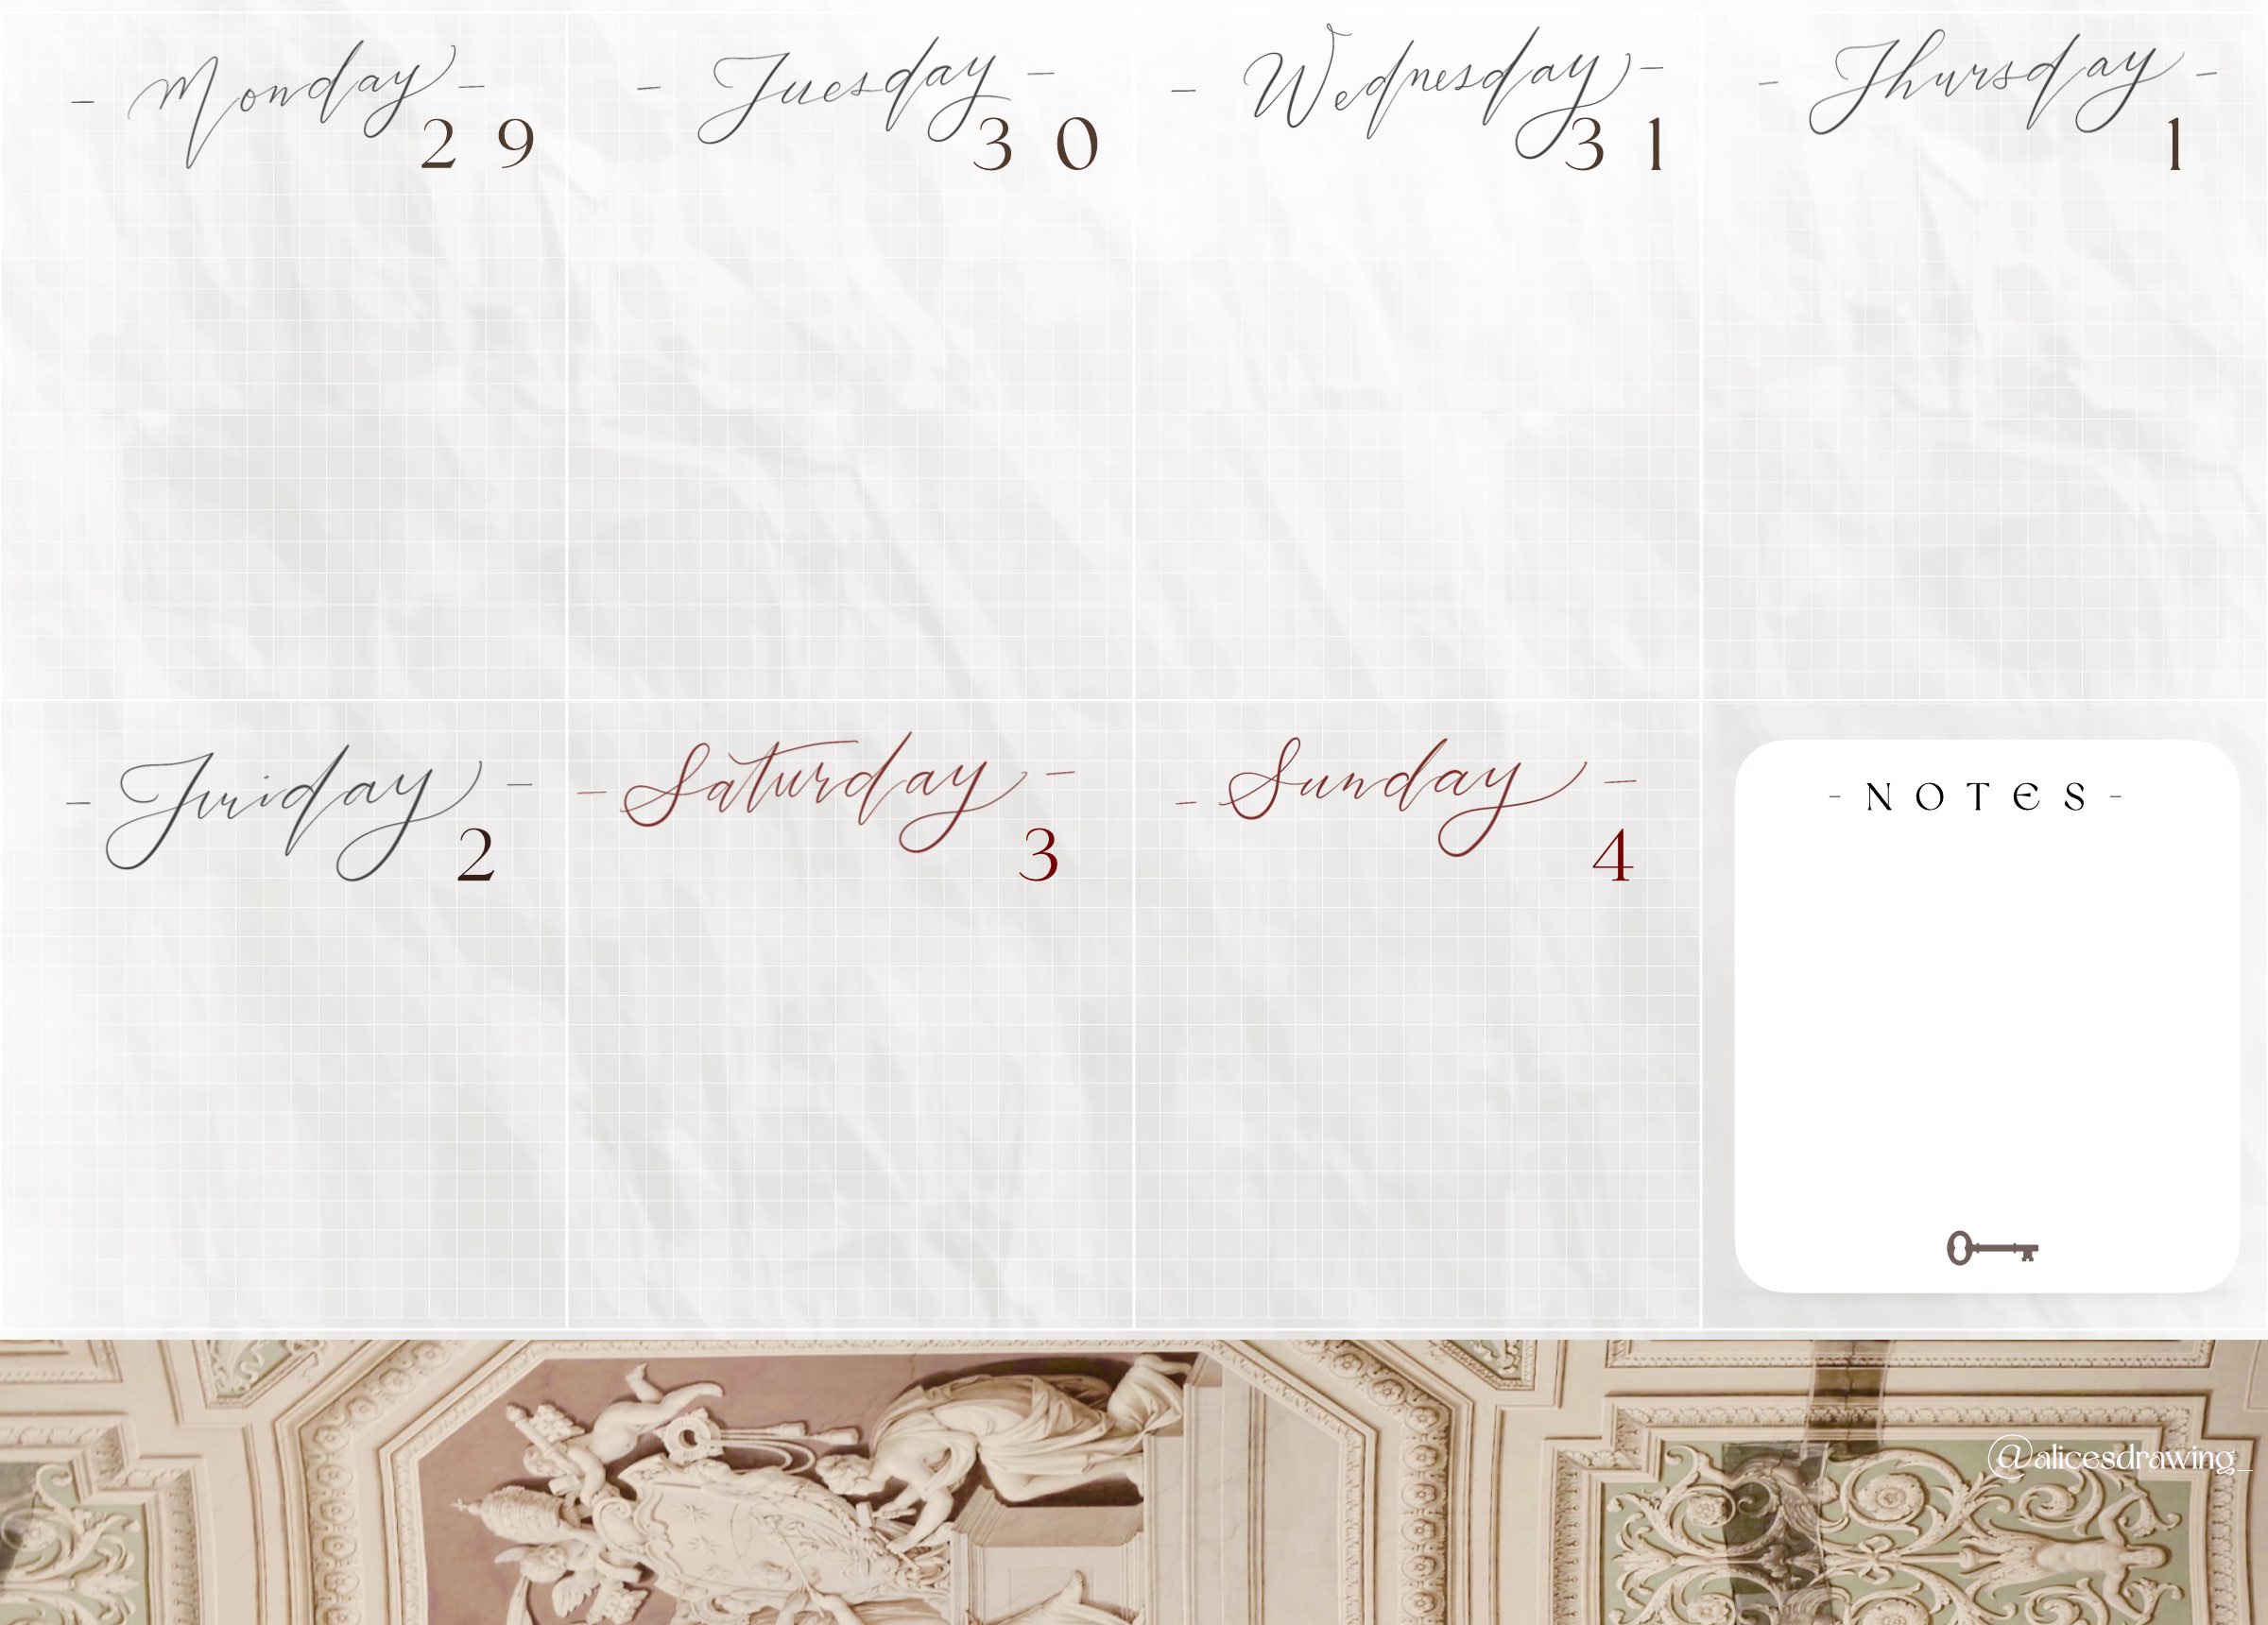 - Monday -
29
- Tuesday -
30
- Wednesday -
31
- Thursday -
1
- Juriday -
2
- Saturday -
3
- Sunday -
4
- NOTES -
@alicesdrawing_